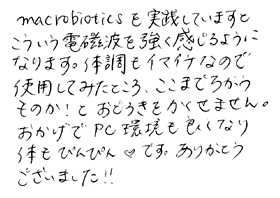 macrobioticsを実践していますと
こういう電磁波を強く感じるように
なります。体調もイマイチなので
使用してみたところ、ここまでちがう
ものか!とおどろきをかくせません。
おかげでPC環境も良くなり
体もぴんぴん♡です。ありがとう
ございました!!